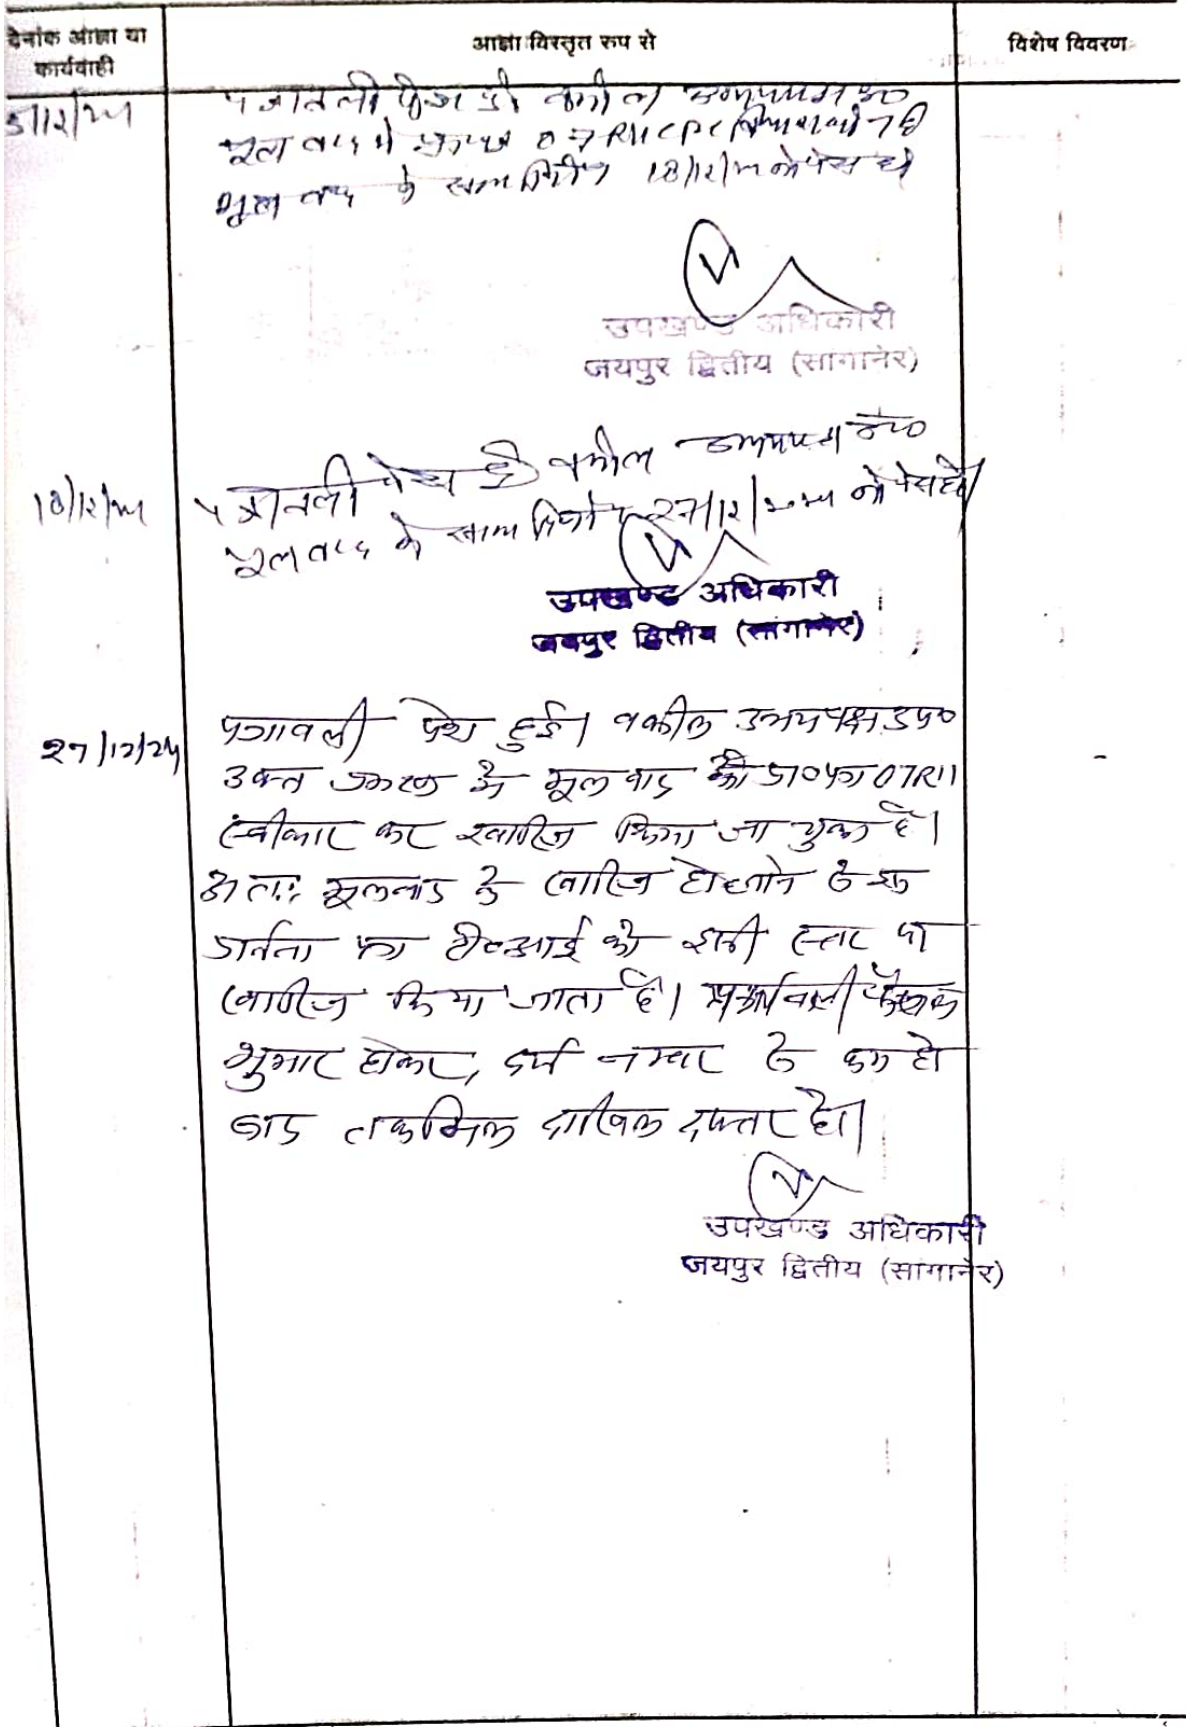 दिनांक आज्ञा या
कार्यवाही
आज्ञा विस्तृत रूप से
विशेष विवरण
पत्रावली पेश हुई वकील उभयपक्ष उप०
मूल वाद में O7R11 CPC विचाराधीन है
मूल वाद के साथ दिनांक 18/12/24 को पेश हो
उपखण्ड अधिकारी
जयपुर द्वितीय (सांगानेर)
18/12/24
पत्रावली पेश हुई वकील उभयपक्ष उप०
मूल वाद के साथ दिनांक 27/12/2024 को पेश हो।
उपखण्ड अधिकारी
जयपुर द्वितीय (सांगानेर)
27/12/24
पत्रावली पेश हुई। वकील उभयपक्ष उप०
उक्त प्रकरण के मूल वाद को प्रा०पत्र O7R11
स्वीकार कर खारिज किया जा चुका है।
अतः मूलवाद के खारिज हो जाने से इस
प्रार्थना पत्र टी०आई को इसी स्तर पर
खारिज किया जाता है। पत्रावली फैसल
शुमार होकर, दर्ज नम्बर से कम हो
बाद तकमिल दाखिल दफ्तर हो।
उपखण्ड अधिकारी
जयपुर द्वितीय (सांगानेर)